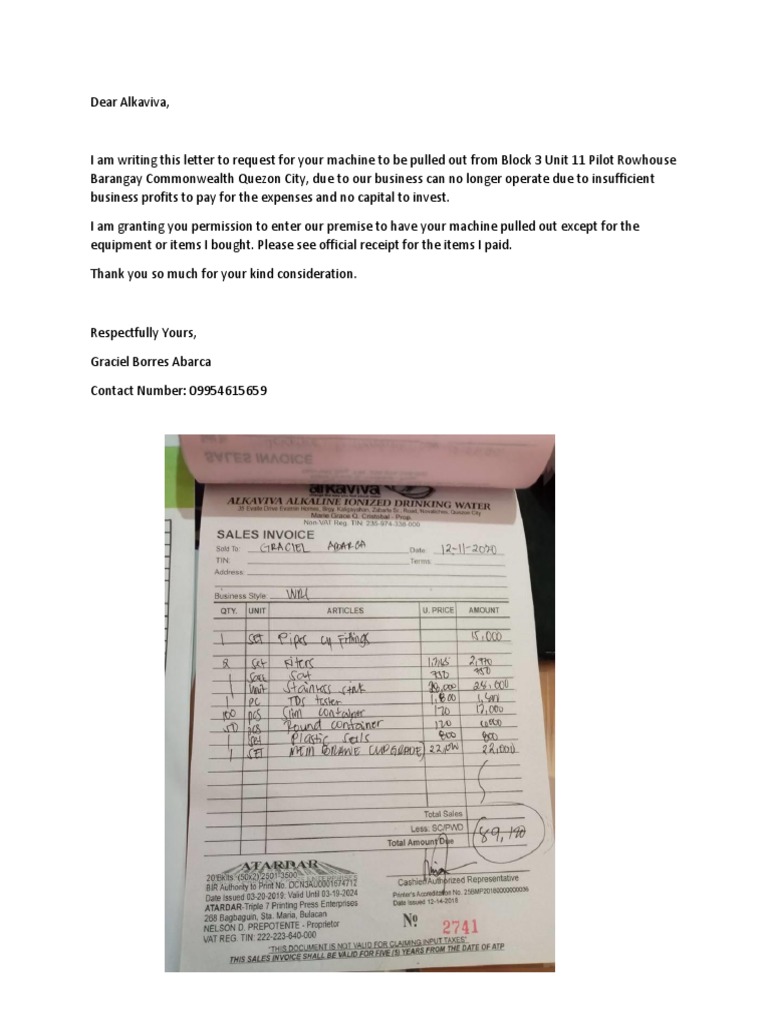 Dear Alkaviva,
I am writing this letter to request for your machine to be pulled out from Block 3 Unit 11 Pilot Rowhouse
Barangay Commonwealth Quezon City, due to our business can no longer operate due to insufficient
business profits to pay for the expenses and no capital to invest.
I am granting you permission to enter our premise to have your machine pulled out except for the
equipment or items I bought. Please see official receipt for the items I paid.
Thank you so much for your kind consideration.
Respectfully Yours,
Graciel Borres Abarca
Contact Number: 09954615659
SALES INVOICE
alkaviva
ALKAVIVA ALKALINE IONIZED DRINKING WATER
Marie Grace G. Cristobal - Prop.
Non-VAT Reg. TIN: 235-974-338-000
SALES INVOICE
Sold To: GRACIEL ABARCA Date 12-11-2020
TIN: Terms:
Address:
Business Style:
QTY. UNIT ARTICLES U. PRICE AMOUNT
1 SET Pipes 15,000
2 Set
1 750 750
1 unit Stainless 28,000 28,000
1 PC TDS tester 1,800
100 pcs Slim container 120 12,000
50 pcs Round container 120
1 set Plastic Seals 800 800
1 SET MEMBRANE (UPGRADE) 22,000
Total Sales
Less: SC/PWD
Total Amount Due 89,120
ATARDAR
PRINTING PRESS ENTERPRISES
20 Bkits. (50x2) 2501-3500
BIR Authority to Print No. OCN3AU0001674712
Date Issued 03-20-2019; Valid Until 03-19-2024
ATARDAR-Triple 7 Printing Press Enterprises
268 Bagbaguin, Sta. Maria, Bulacan
NELSON D. PREPOTENTE - Proprietor
VAT REG. TIN: 222-223-640-000
Cashier/Authorized Representative
Printer's Accreditation No. 25BMP20180000000036
Date Issued 12-14-2018
No 2741
"THIS DOCUMENT IS NOT VALID FOR CLAIMING INPUT TAXES"
THIS SALES INVOICE SHALL BE VALID FOR FIVE (5) YEARS FROM THE DATE OF ATP